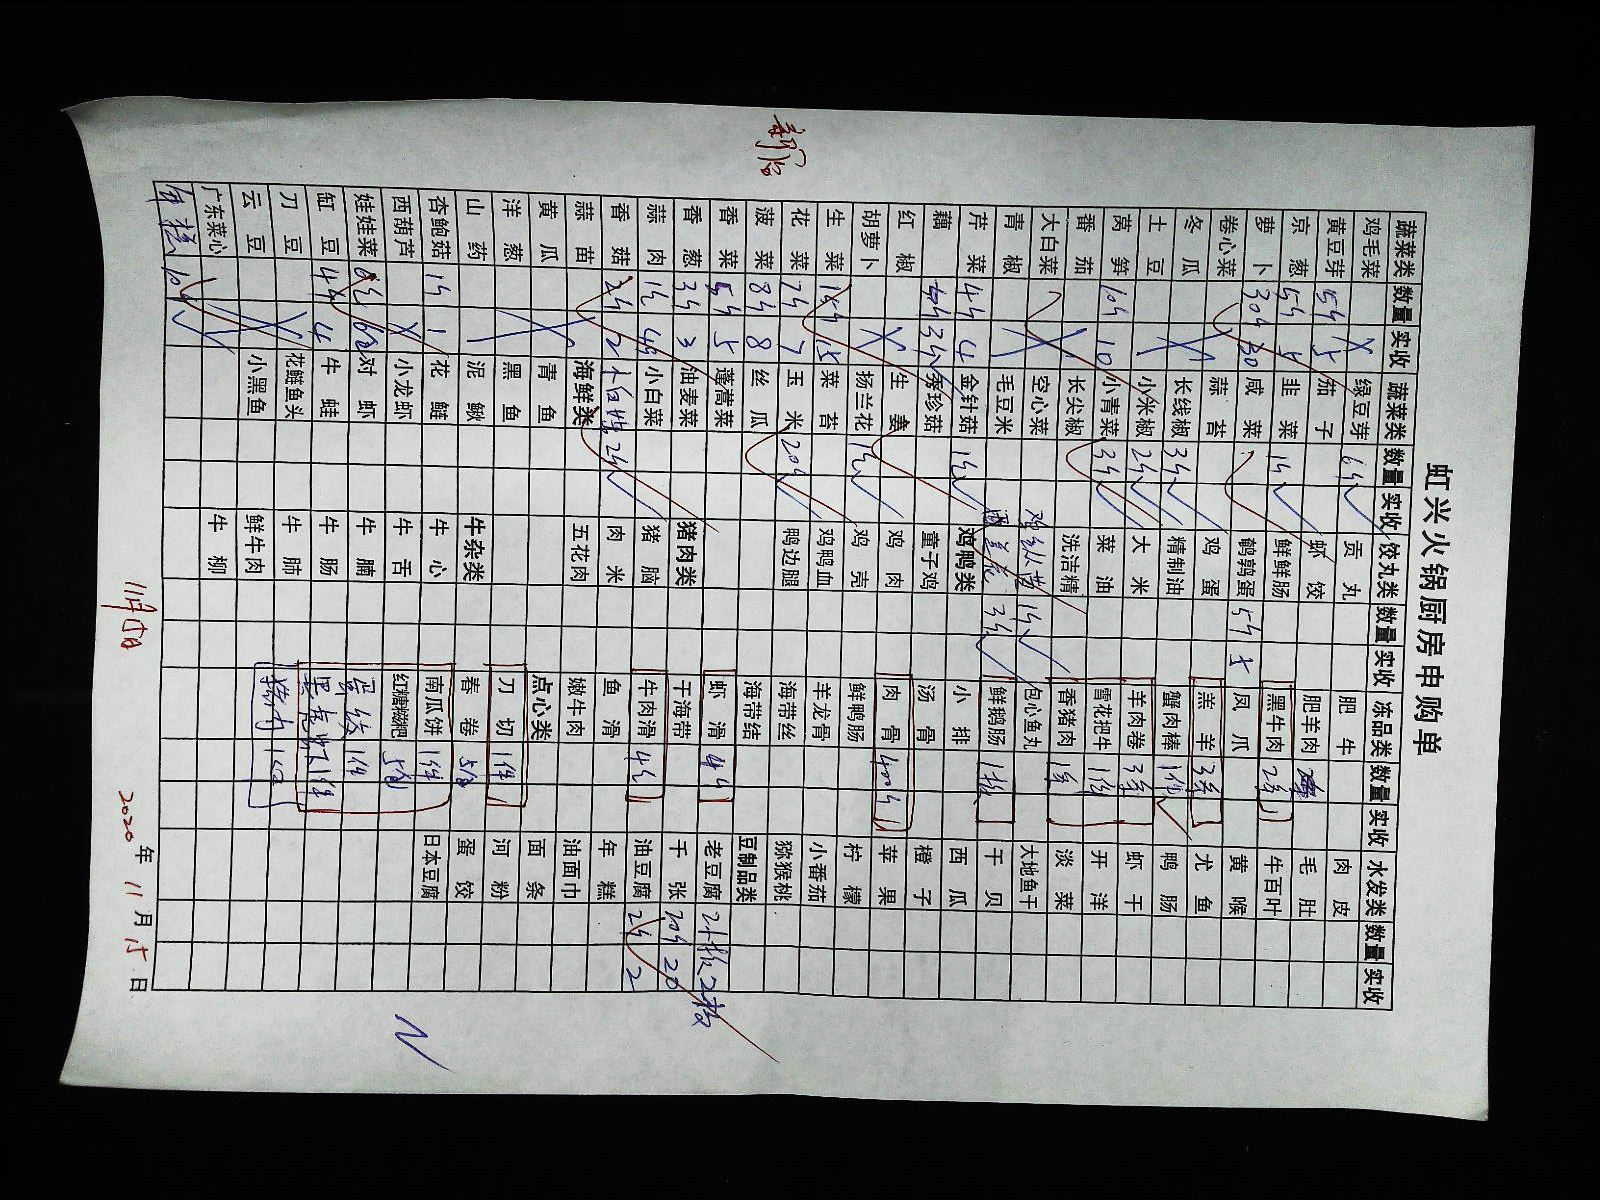 新店
虹兴火锅厨房申购单
蔬菜类 数量 实收 蔬菜类 数量 实收 饺丸类 数量 实收 冻品类 数量 实收 水发类 数量 实收
鸡毛菜 绿豆芽 6斤 贡丸 肥牛 肉皮
黄豆芽 5斤 5 茄子 虾饺 肥羊肉 毛肚
京葱 5斤 5 韭菜 1斤 鲜鲜肠 黑牛肉 2条 牛百叶
萝卜 30斤 30 咸菜 鹌鹑蛋 5斤 5 凤爪 黄喉
卷心菜 蒜苔 鸡蛋 羔羊 3条 尤鱼
冬瓜 长线椒 3斤 精制油 蟹肉棒 1包 鸭肠
土豆 小米椒 2斤 大米 羊肉卷 3条 虾干
莴笋 10斤 10 小青菜 3斤 菜油 雪花把牛 1份 开洋
番茄 长尖椒 洗洁精 香猪肉 1条 淡菜
大白菜 空心菜 1斤 包心鱼丸 大地鱼干
青椒 毛豆米 3斤 鲜鹅肠 1板 干贝
芹菜 4斤 4 金针菇 1斤 鸡鸭类 小排 西瓜
藕 3斤 秀珍菇 童子鸡 汤骨 橙子
红椒 生姜 鸡肉 肉骨 40斤 苹果
胡萝卜 扬兰花 1斤 鸡壳 鲜鸭肠 柠檬
生菜 15斤 15 菜苔 鸡鸭血 羊龙骨 小番茄
花菜 7斤 7 玉米 20斤 鸭边腿 海带丝 猕猴桃
菠菜 8斤 8 丝瓜 海带结 豆制品类
香菜 5斤 5 蓬蒿菜 虾滑 4斤 老豆腐 2板 2板
香葱 3斤 3 油麦菜 猪肉类 干海带 千张 20斤 20
蒜肉 1斤 小白菜 猪脑 牛肉滑 4斤 油豆腐 2斤 2
香菇 2斤 2 2斤 肉米 鱼滑 年糕
蒜苗 海鲜类 五花肉 嫩牛肉 油面巾
黄瓜 青鱼 点心类 面条
洋葱 黑鱼 刀切 1件 河粉
山药 泥鳅 牛杂类 春卷 5包 蛋饺
杏鲍菇 1斤 1 花鲢 牛心 南瓜饼 1件 日本豆腐
西葫芦 小龙虾 牛舌 红糖糍粑 5包
娃娃菜 6包 6包 对虾 牛腩 蛋饺 1件
缸豆 4斤 牛蛙 牛肠 1件
刀豆 花鲢鱼头 牛肺 猪肉
云豆 小黑鱼 鲜牛肉
广东菜心 牛柳
年糕 10斤
11月15日 2020年11月15日